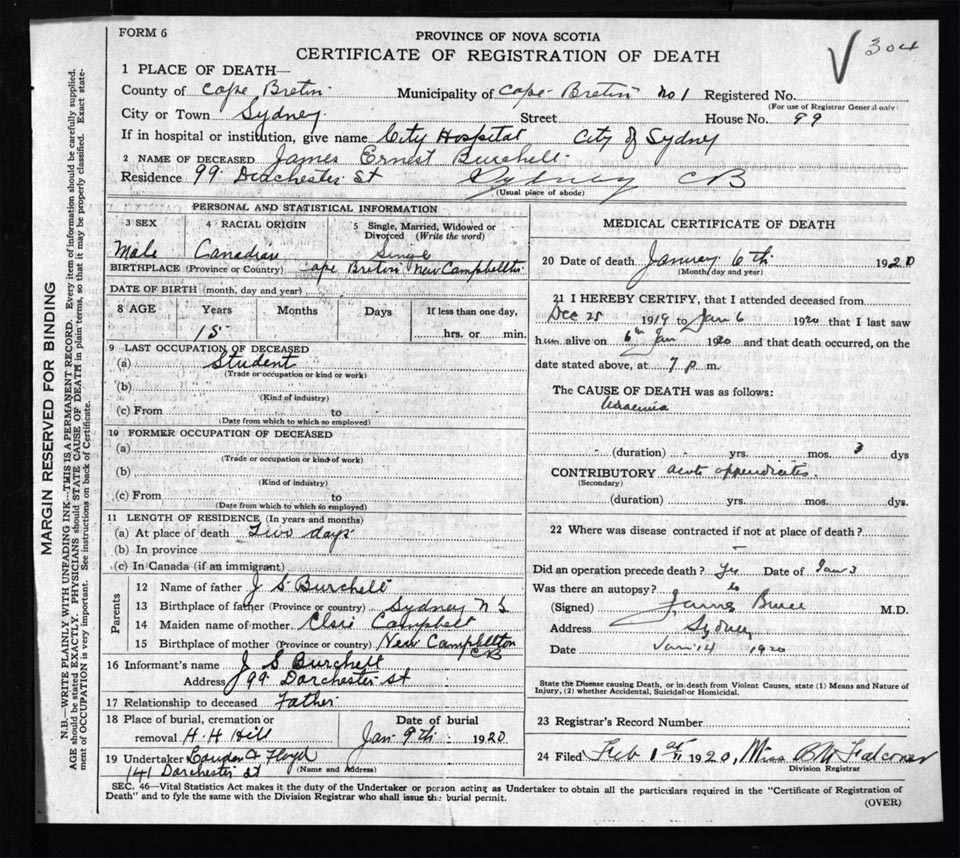 FORM 6
PROVINCE OF NOVA SCOTIA
CERTIFICATE OF REGISTRATION OF DEATH
304
1 PLACE OF DEATH—
County of Cape Breton Municipality of Cape Breton No 1 Registered No.
(For use of Registrar General only)
City or Town Sydney Street House No. 99
If in hospital or institution, give name City Hospital City of Sydney
2 NAME OF DECEASED James Ernest Burchell
Residence 99 Dorchester St Sydney CB
(Usual place of abode)
PERSONAL AND STATISTICAL INFORMATION
3 SEX 4 RACIAL ORIGIN 5 Single, Married, Widowed or Divorced (Write the word)
Male Canadian Single
BIRTHPLACE (Province or Country) Cape Breton New Campbellton
DATE OF BIRTH (month, day and year)
8 AGE Years Months Days If less than one day,
15 hrs. or min.
9 LAST OCCUPATION OF DECEASED
(a) Student
(Trade or occupation or kind or work)
(b)
(Kind of industry)
(c) From to
(Date from which to which so employed)
10 FORMER OCCUPATION OF DECEASED
(a)
(Trade or occupation or kind of work)
(b)
(Kind of industry)
(c) From to
(Date from which to which so employed)
11 LENGTH OF RESIDENCE (In years and months)
(a) At place of death Two days
(b) In province
(c) In Canada (if an immigrant)
Parents
12 Name of father J S Burchell
13 Birthplace of father (Province or country) Sydney N S
14 Maiden name of mother Elsie Campbell
15 Birthplace of mother (Province or country) New Campbellton CB
16 Informant's name J S Burchell
Address 99 Dorchester st
17 Relationship to deceased Father
18 Place of burial, cremation or removal H. H Hill
Date of burial Jan 9th 1920
19 Undertaker A Floyd
141 Dorchester St (Name and Address)
MEDICAL CERTIFICATE OF DEATH
20 Date of death January 6th 1920
(Month, day and year)
21 I HEREBY CERTIFY, that I attended deceased from
Dec 25 1919 to Jan 6 1920 that I last saw
him alive on 6th Jan 1920 and that death occurred, on the
date stated above, at 7 p m.
The CAUSE OF DEATH was as follows:
Uraemia
(duration) yrs. mos. 3 dys
CONTRIBUTORY acute appendicites
(Secondary)
(duration) yrs. mos. dys.
22 Where was disease contracted if not at place of death?
Did an operation precede death? Yes Date of Jan 3
Was there an autopsy? No
(Signed) James Bruce M.D.
Address Sydney
Date Jan 14 1920
State the Disease causing Death, or in death from Violent Causes, state (1) Means and Nature of
Injury, (2) whether Accidental, Suicidal or Homicidal.
23 Registrar's Record Number
24 Filed Feb 1st 1920, Miss B M Falconer
Division Registrar
SEC. 46—Vital Statistics Act makes it the duty of the Undertaker or person acting as Undertaker to obtain all the particulars required in the "Certificate of Registration of
Death" and to fyle the same with the Division Registrar who shall issue the burial permit.
(OVER)
MARGIN RESERVED FOR BINDING
N.B.—WRITE PLAINLY WITH UNFADING INK—THIS IS A PERMANENT RECORD. Every item of information should be carefully supplied.
AGE should be stated EXACTLY. PHYSICIANS should STATE CAUSE OF DEATH in plain terms, so that it may be properly classified. Exact state-
ment of OCCUPATION is very important. See instructions on back of Certificate.